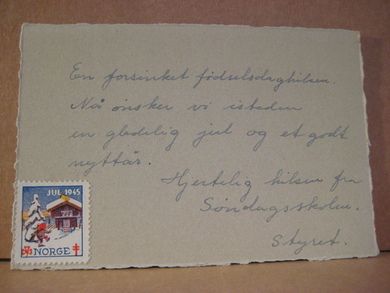 En forsinket fødselsdaghilsen.
Nå ønsker vi isteden
en gledelig jul og et godt
nyttår.
Hjertelig hilsen fra
Søndagsskolen.
Styret.
JUL 1945
NORGE